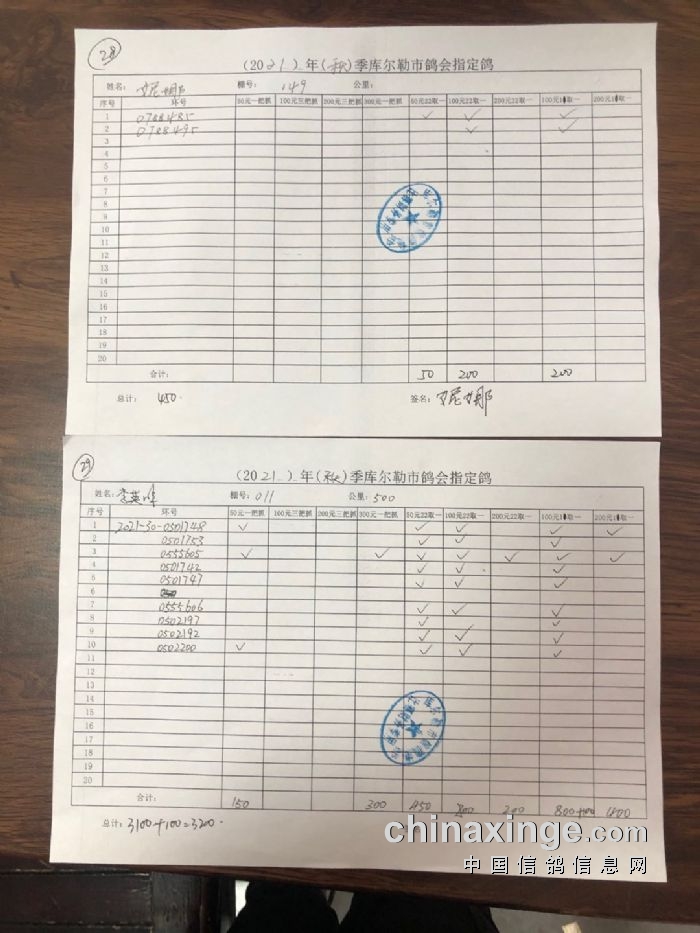 28
(2021)年(秋)季库尔勒市鸽会指定鸽
姓名: 棚号: 149 公里:
序号 环号 50元一把抓 100元三把抓 200元三把抓 300元一把抓 50元22取一 100元22取一 200元22取一 100元10取一 200元10取一
1 0788485 ✓ ✓ ✓
2 0788495 ✓ ✓
3
4
5
6
7
8
9
10
11
12
13
14
15
16
17
18
19
20
合计: 50 200 200
总计: 450 签名:
29
(2021)年(秋)季库尔勒市鸽会指定鸽
姓名: 李英 棚号: 011 公里: 500
序号 环号 50元一把抓 100元三把抓 200元三把抓 300元一把抓 50元22取一 100元22取一 200元22取一 100元10取一 200元10取一
1 2021-30-0501748 ✓ ✓ ✓ ✓ ✓
2 0501753 ✓ ✓ ✓
3 0555605 ✓ ✓ ✓ ✓ ✓ ✓ ✓
4 0501742 ✓ ✓ ✓
5 0501747 ✓ ✓ ✓
6
7 0555606 ✓ ✓ ✓
8 0502197 ✓ ✓
9 0502192 ✓ ✓ ✓
10 0502200 ✓ ✓ ✓ ✓
11
12
13
14
15
16
17
18
19
20
合计: 150 300 450 800 200 800+100
总计: 3100+100=3200
chinaxinge.com
中国信鸽信息网